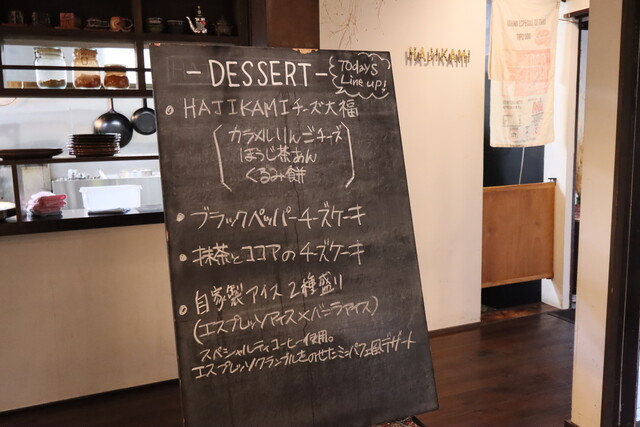 - DESSERT -
Today's
Line up!
HAJIKAMI
• HAJIKAMIチーズ大福
(カラメルりんごチーズ
ほうじ茶あん
くるみ餅)
• ブラックペッパーチーズケーキ
• 抹茶とココアのチーズケーキ
• 自家製アイス2種盛り
(エスプレッソアイス×バニラアイス)
スペシャルティコーヒー使用。
エスプレッソクランブルをのせたミニパフェ風デザート